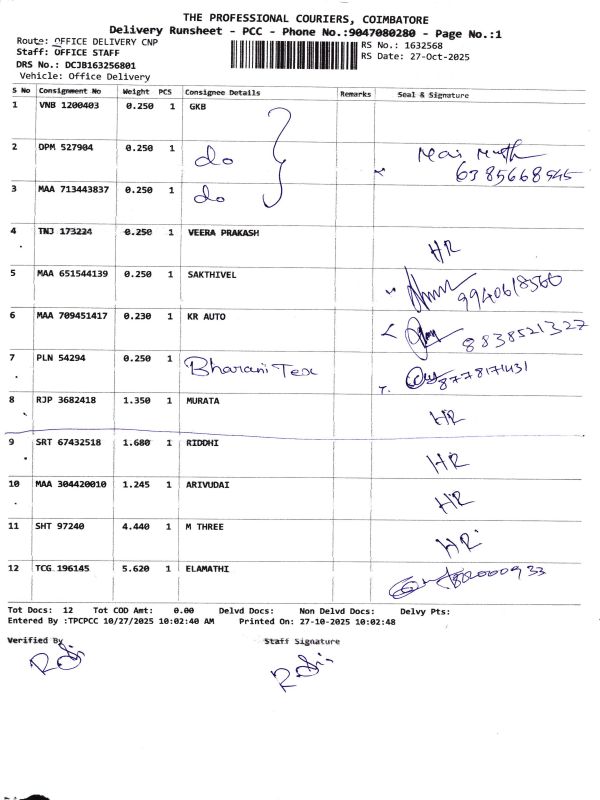 THE PROFESSIONAL COURIERS, COIMBATORE
Delivery Runsheet - PCC - Phone No.:9047080280 - Page No.:1
Route: OFFICE DELIVERY CNP
RS No.: 1632568
Staff: OFFICE STAFF
RS Date: 27-Oct-2025
DRS No.: DCJB163256801
Vehicle: Office Delivery
S No Consignment No Weight PCS Consignee Details Remarks Seal & Signature
1 VNB 1200403 0.250 1 GKB
2 DPM 527904 0.250 1 do
6385668545
3 MAA 713443837 0.250 1 do
4 TNJ 173224 0.250 1 VEERA PRAKASH HR
5 MAA 651544139 0.250 1 SAKTHIVEL 9940618360
6 MAA 709451417 0.230 1 KR AUTO 8838521327
7 PLN 54294 0.250 1 Bharani Tex 8778171431
8 RJP 3682418 1.350 1 MURATA HR
9 SRT 67432518 1.680 1 RIDDHI HR
10 MAA 304420010 1.245 1 ARIVUDAI HR
11 SHT 97240 4.440 1 M THREE HR
12 TCG 196145 5.620 1 ELAMATHI
Tot Docs: 12 Tot COD Amt: 0.00 Delvd Docs: Non Delvd Docs: Delvy Pts:
Entered By :TPCPCC 10/27/2025 10:02:40 AM Printed On: 27-10-2025 10:02:48
Verified By Staff Signature